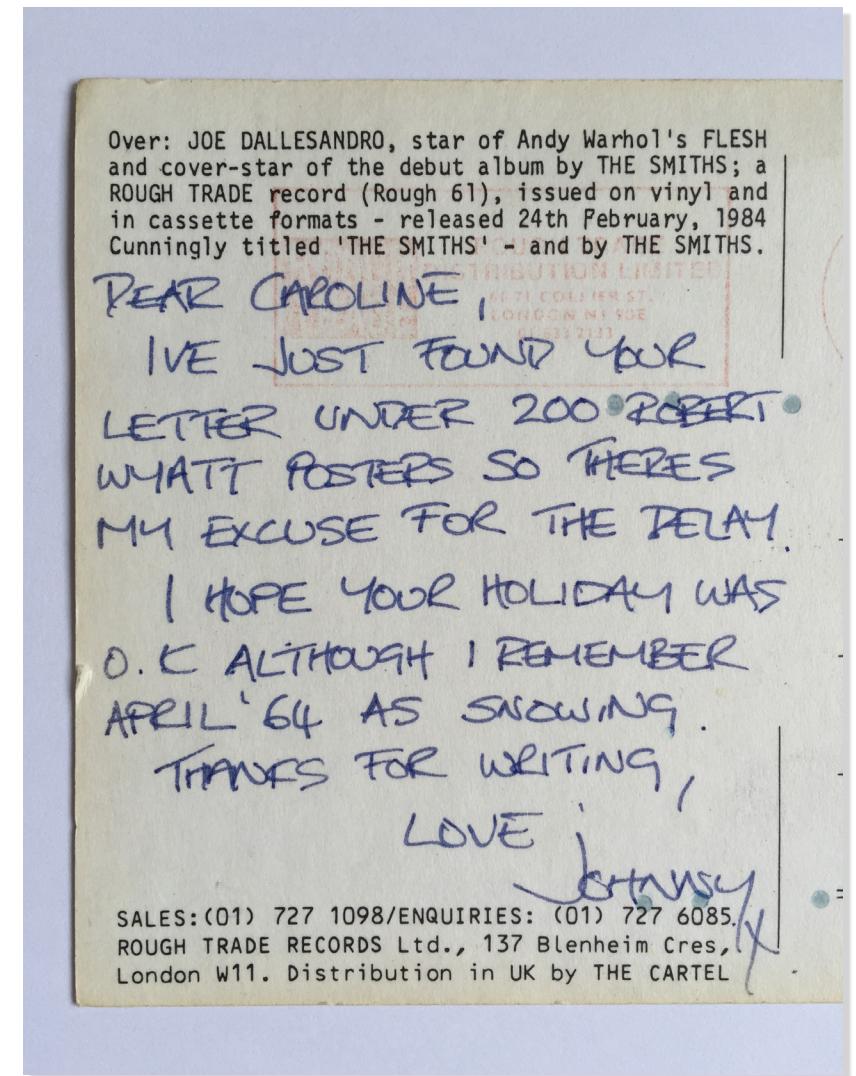 Over: JOE DALLESANDRO, star of Andy Warhol's FLESH
and cover-star of the debut album by THE SMITHS; a
ROUGH TRADE record (Rough 61), issued on vinyl and
in cassette formats - released 24th February, 1984
Cunningly titled 'THE SMITHS' - and by THE SMITHS.
DISTRIBUTION LIMITED
COLLIER ST.
LONDON N1 9DE
DEAR CAROLINE,
IVE JUST FOUND YOUR
LETTER UNDER 200 ROBERT
WYATT POSTERS SO THERES
MY EXCUSE FOR THE DELAY.
I HOPE YOUR HOLIDAY WAS
O.K ALTHOUGH I REMEMBER
APRIL '64 AS SNOWING.
THANKS FOR WRITING,
LOVE
JOHNNY
X
SALES:(01) 727 1098/ENQUIRIES: (01) 727 6085.
ROUGH TRADE RECORDS Ltd., 137 Blenheim Cres,
London W11. Distribution in UK by THE CARTEL